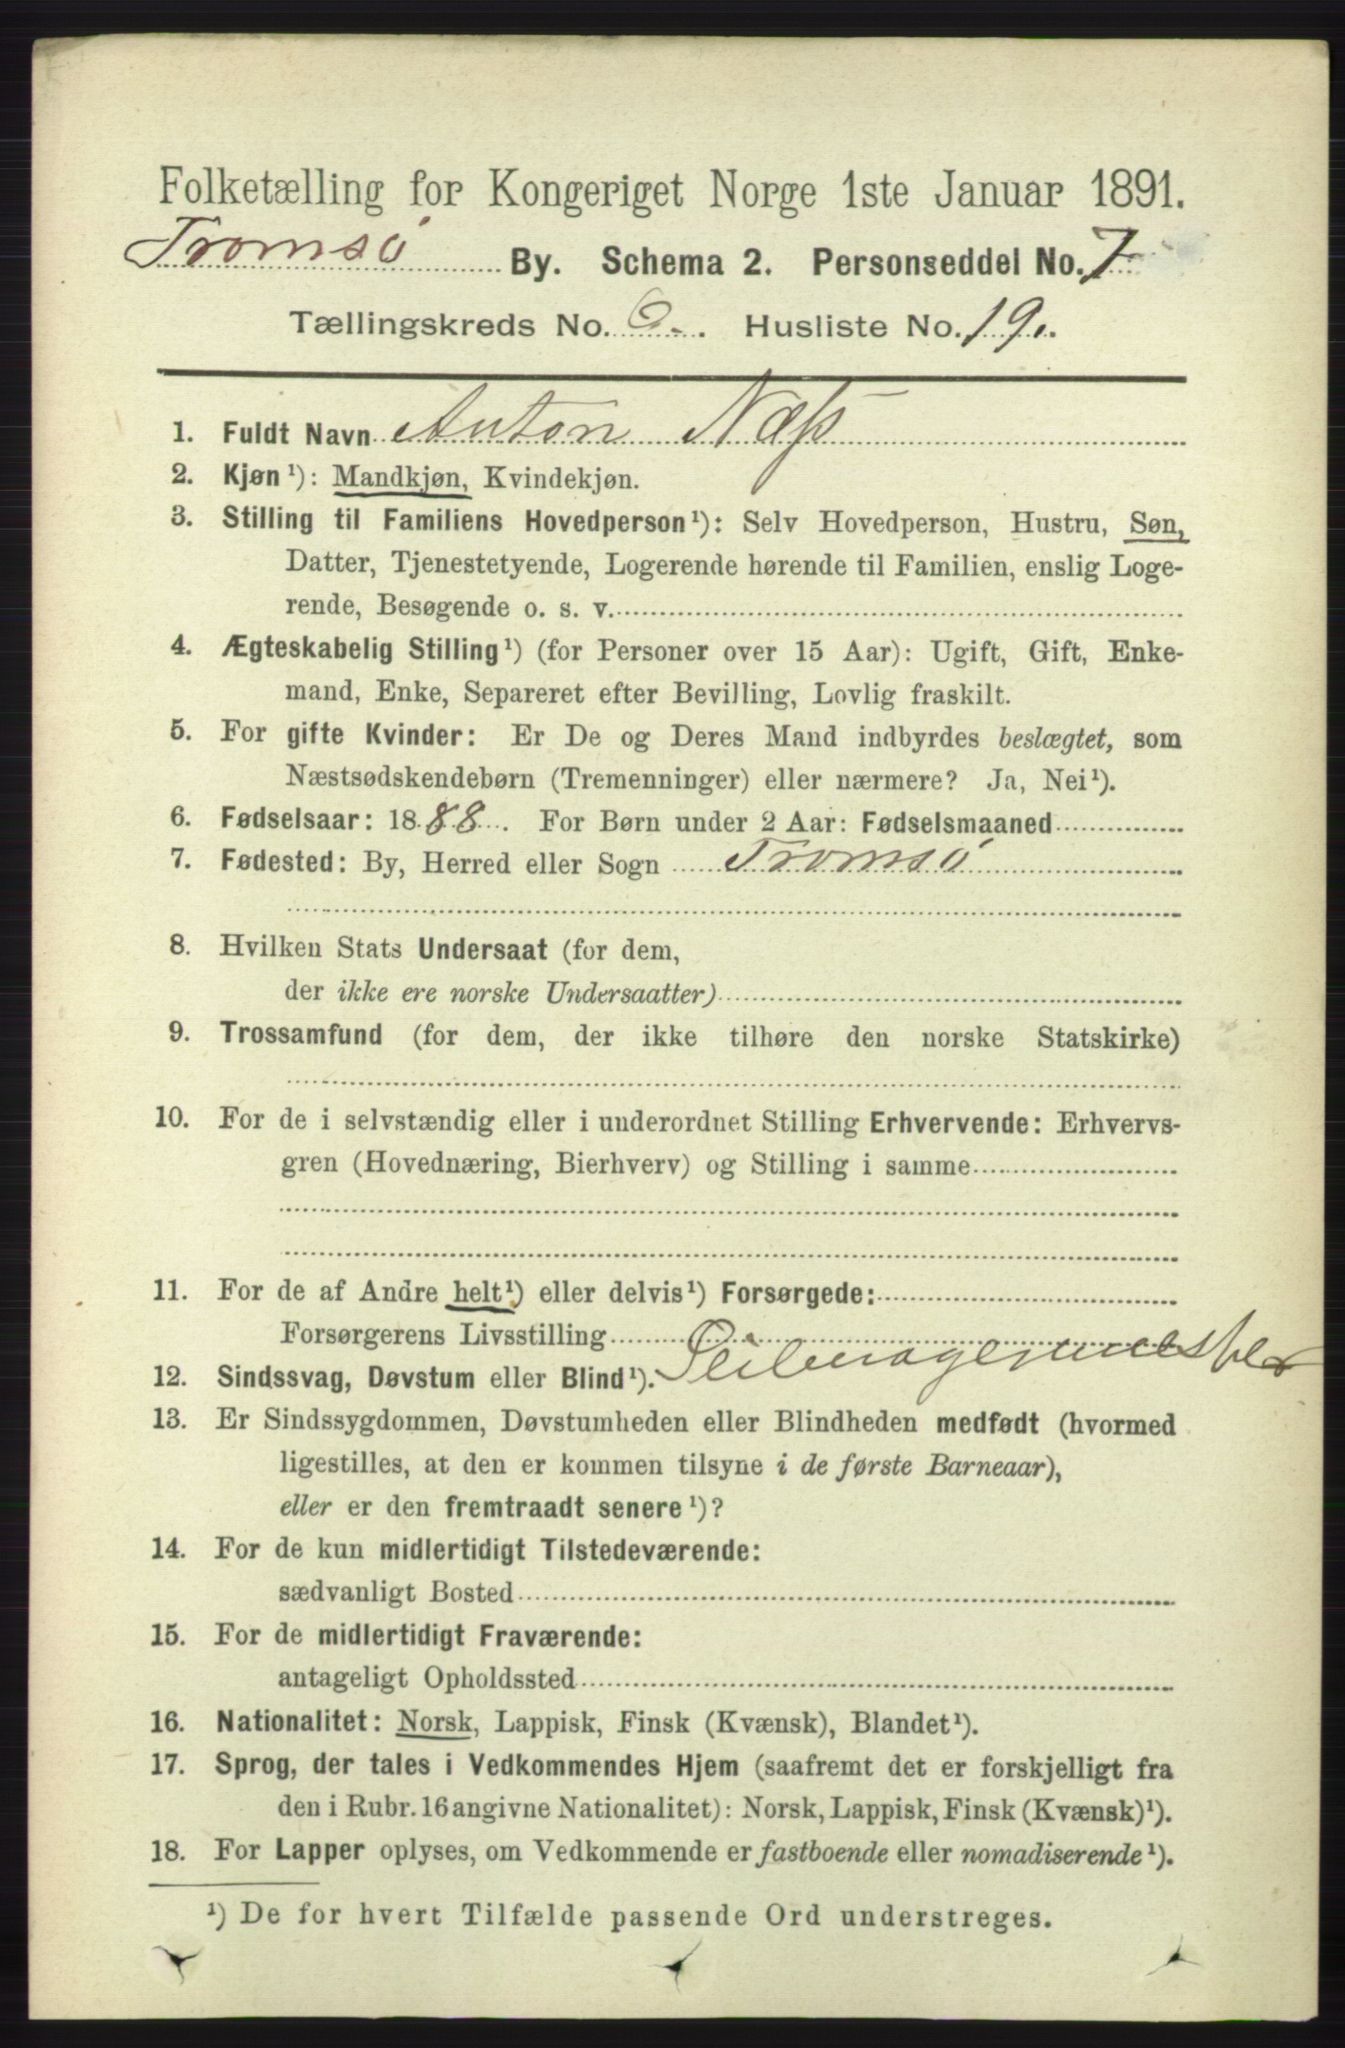 Folketælling for Kongeriget Norge 1ste Januar 1891.
Tromsø By. Schema 2. Personseddel No. 7
Tællingskreds No. 6. Husliste No. 19.
1. Fuldt Navn Anton Næss
2. Kjøn¹): Mandkjøn, Kvindekjøn.
3. Stilling til Familiens Hovedperson¹): Selv Hovedperson, Hustru, Søn,
Datter, Tjenestetyende, Logerende hørende til Familien, enslig Loge-
rende, Besøgende o. s. v.
4. Ægteskabelig Stilling¹) (for Personer over 15 Aar): Ugift, Gift, Enke-
mand, Enke, Separeret efter Bevilling, Lovlig fraskilt.
5. For gifte Kvinder: Er De og Deres Mand indbyrdes beslægtet, som
Næstsødskendebørn (Tremenninger) eller nærmere? Ja, Nei¹).
6. Fødselsaar: 1888. For Børn under 2 Aar: Fødselsmaaned
7. Fødested: By, Herred eller Sogn Tromsø
8. Hvilken Stats Undersaat (for dem,
der ikke ere norske Undersaatter)
9. Trossamfund (for dem, der ikke tilhøre den norske Statskirke)
10. For de i selvstændig eller i underordnet Stilling Erhvervende: Erhvervs-
gren (Hovednæring, Bierhverv) og Stilling i samme
11. For de af Andre helt¹) eller delvis¹) Forsørgede:
Forsørgerens Livsstilling
12. Sindssvag, Døvstum eller Blind¹).
13. Er Sindssygdommen, Døvstumheden eller Blindheden medfødt (hvormed
ligestilles, at den er kommen tilsyne i de første Barneaar),
eller er den fremtraadt senere¹)?
14. For de kun midlertidigt Tilstedeværende:
sædvanligt Bosted
15. For de midlertidigt Fraværende:
antageligt Opholdssted
16. Nationalitet: Norsk, Lappisk, Finsk (Kvænsk), Blandet¹).
17. Sprog, der tales i Vedkommendes Hjem (saafremt det er forskjelligt fra
den i Rubr. 16 angivne Nationalitet): Norsk, Lappisk, Finsk (Kvænsk)¹).
18. For Lapper oplyses, om Vedkommende er fastboende eller nomadiserende¹).
¹) De for hvert Tilfælde passende Ord understreges.